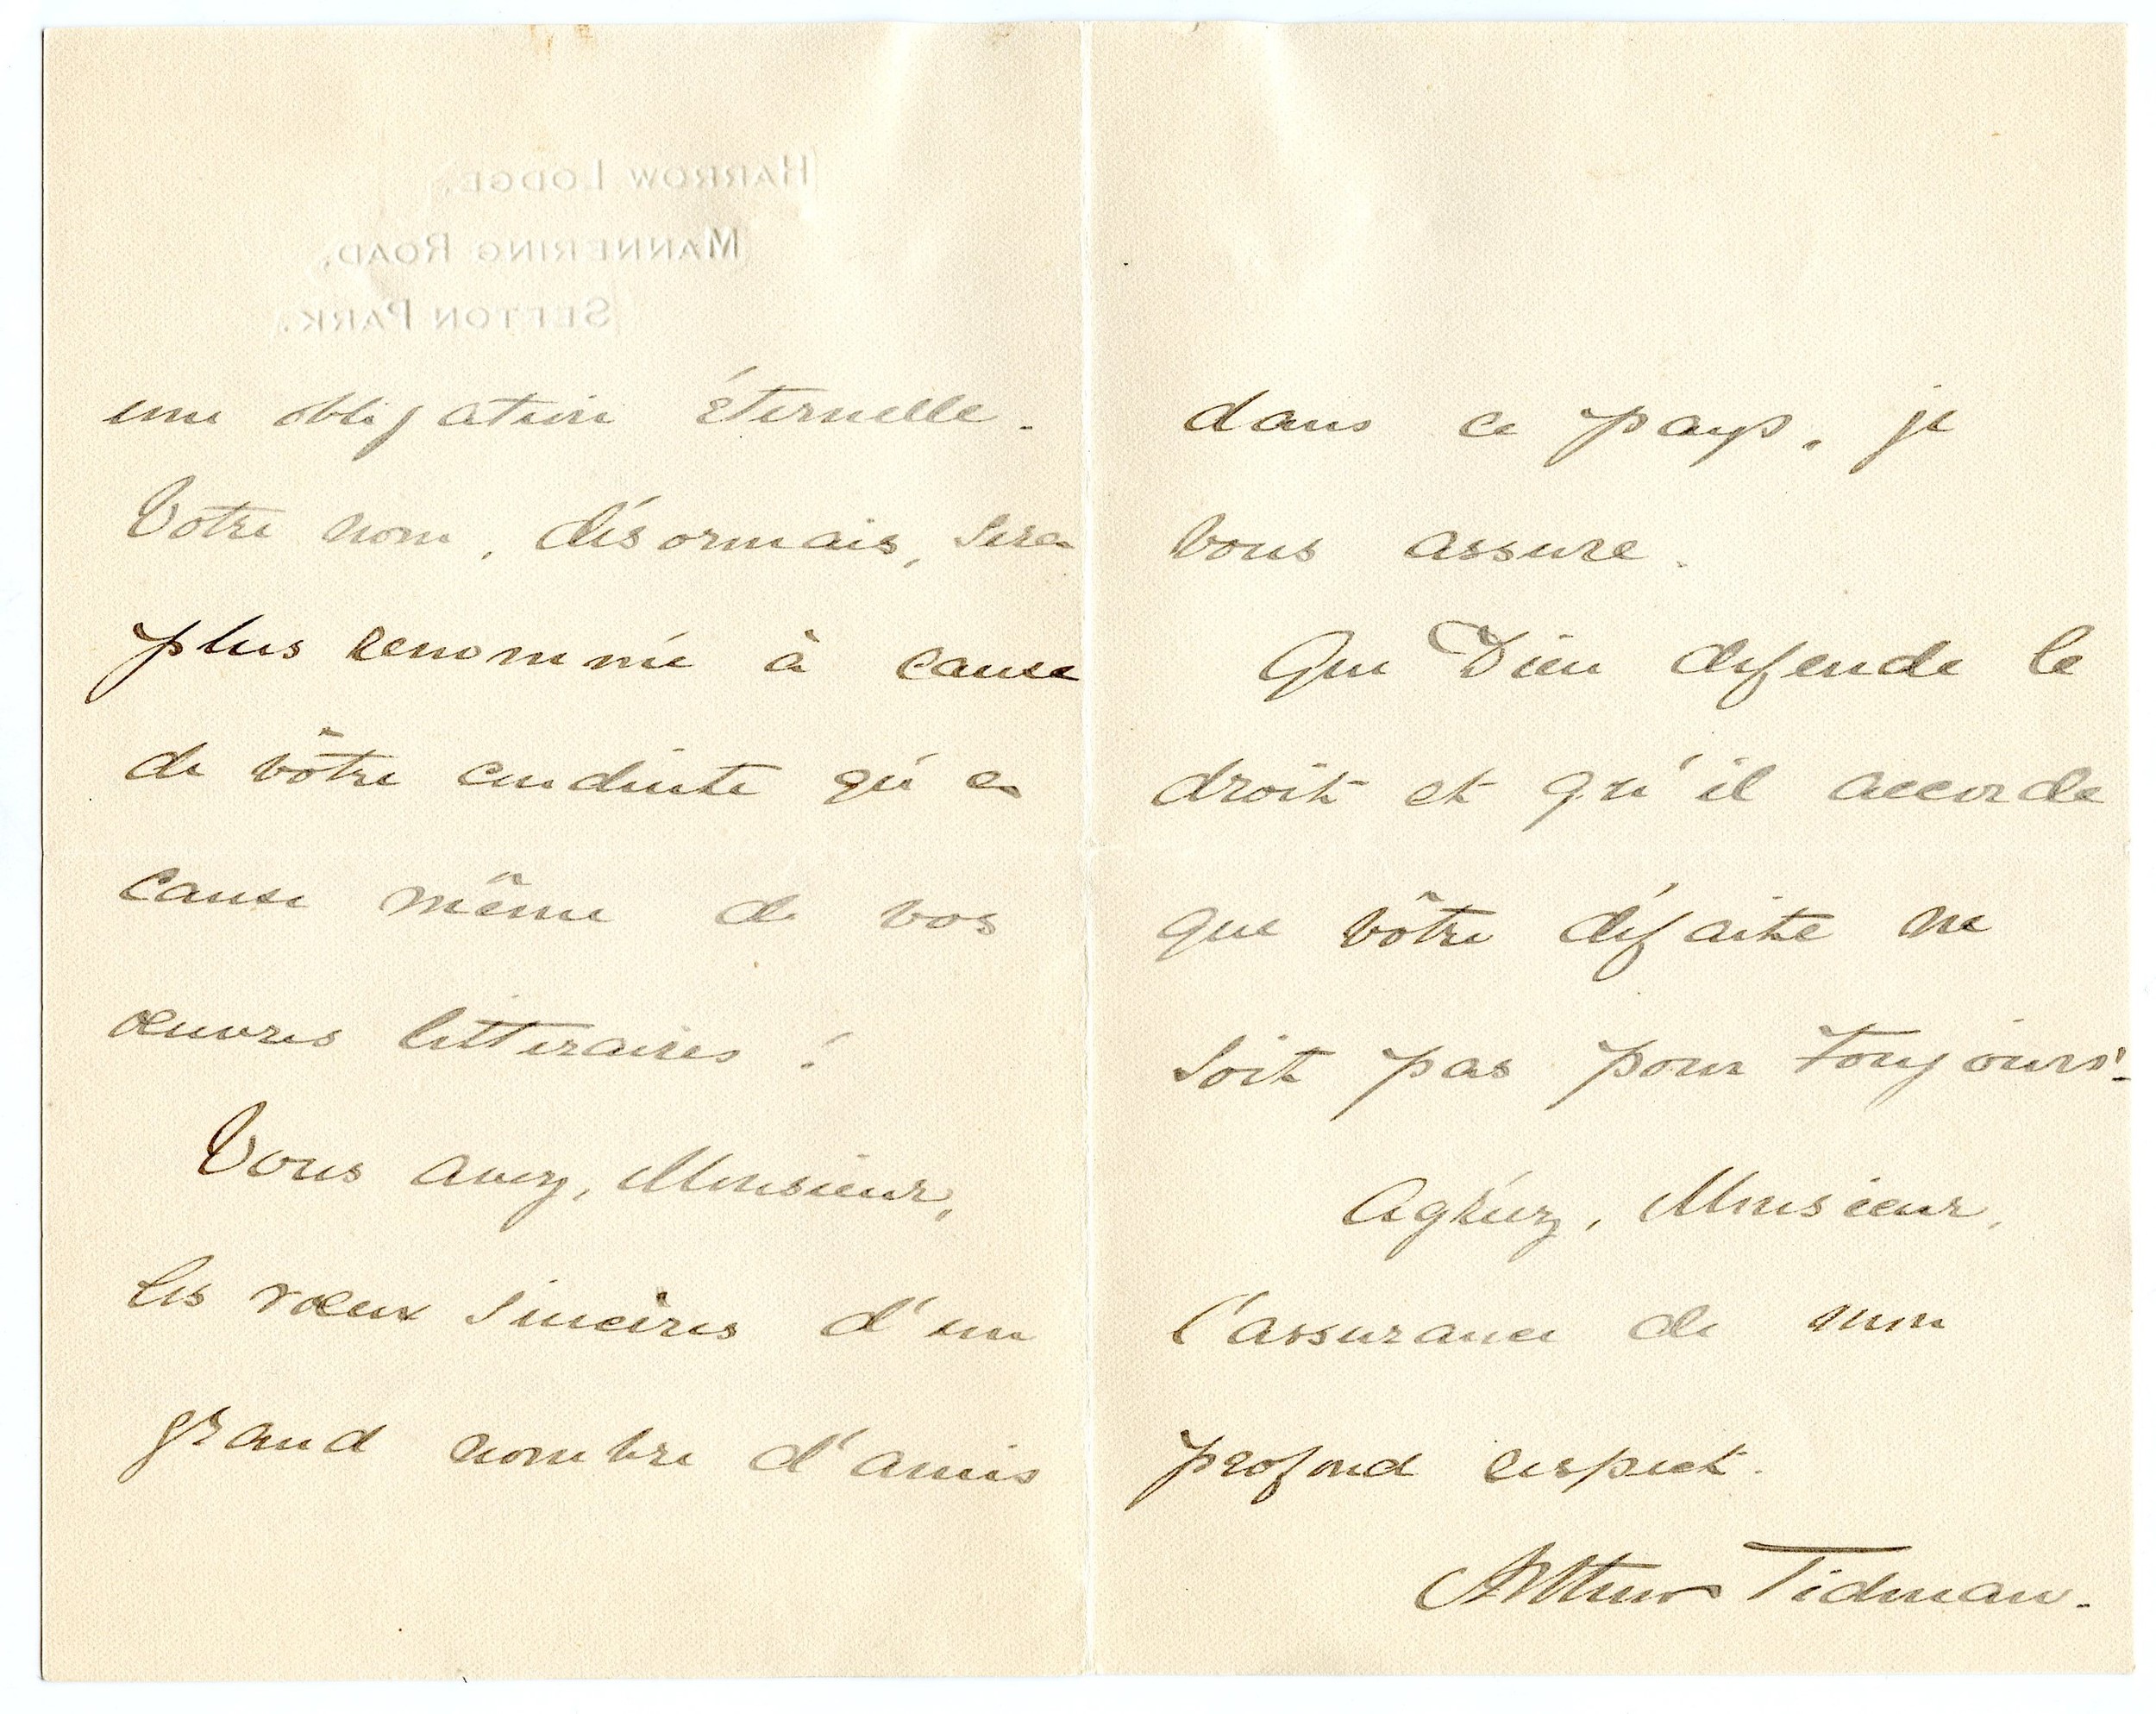 HARROW LODGE,
MANNERING ROAD,
SEFTON PARK.
une obligation éternelle.
Votre nom, désormais, sera
plus renommé à cause
de vôtre conduite qu'à
cause même de vos
œuvres litteraires!
Vous avez, Monsieur,
les vœux sincères d'un
grand nombre d'amis
dans ce pays, je
vous assure.
Que Dieu defende le
droit et qu'il accorde
que vôtre défaite ne
soit pas pour toujours.
Agréez, Monsieur,
l'assurance de mon
profond respect.
Arthur Tidman.